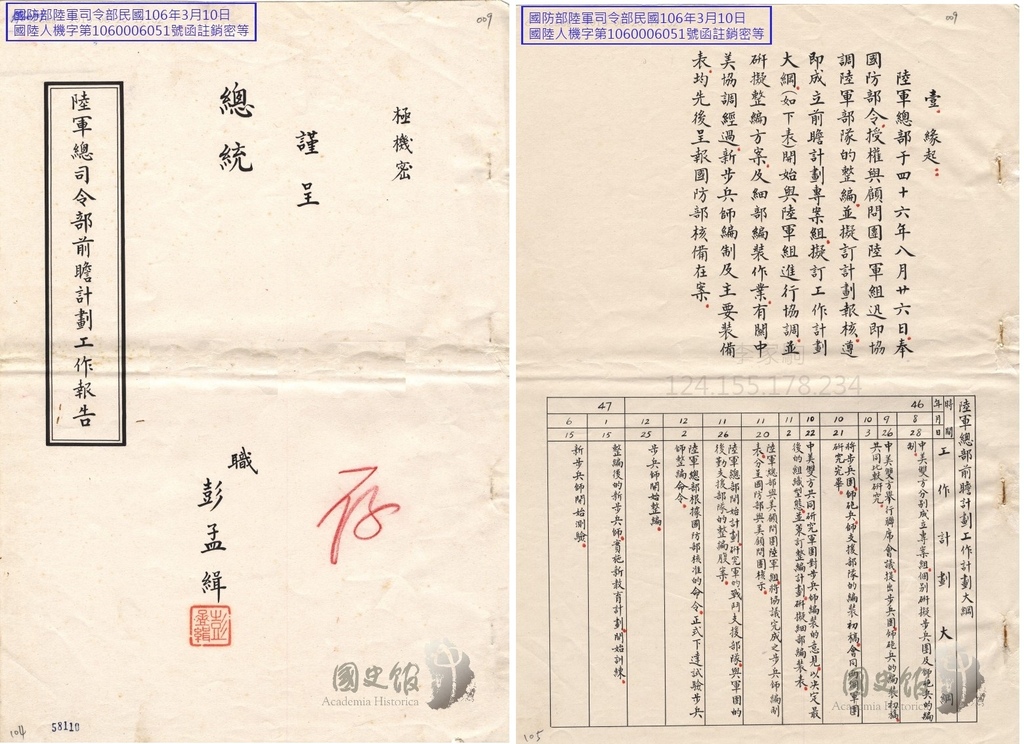 國防部陸軍司令部民國106年3月10日
國陸人機字第1060006051號函註銷密等
009
極機密
謹呈
總統
陸軍總司令部前瞻計劃工作報告
職
彭孟緝
存
104
58110
國史館
Academia Historica
國防部陸軍司令部民國106年3月10日
國陸人機字第1060006051號函註銷密等
009
壹、緣起：
陸軍總部于四十六年八月廿六日奉
國防部令授權與顧問團陸軍組迅即協
調陸軍部隊的整編並擬訂計劃報核遵
即成立前瞻計劃專案組擬訂工作計劃
大綱(如下表)開始與陸軍組進行協調並
研擬整編方案及細部編裝作業有關中
美協調經過新步兵師編制及主要裝備
表均先後呈報國防部核備在案。
124.155.178.234
陸軍總部前瞻計劃工作計劃大綱
時間
年月日
工作計劃大綱
46
8 28 中美雙方分別成立專案組個別研擬步兵團及師砲兵的編制
9 26 中美雙方舉行聯席會議提出步兵團師砲兵的編裝初稿共同比較研究
10 3
10 21 將步兵團師砲兵師支援部隊的編裝初稿會同兩軍團研究完畢
10 22 中美雙方共同研究軍團對步兵師編裝的意見以決定最
11 2 後的組織型態並策訂整編計劃研擬細部編裝表
11 20 陸軍總部與美顧問團陸軍組將協議完成之步兵師編制表分呈國防部與美顧問團核示
11 26 陸軍總部開始計劃研究軍的戰鬥支援部隊與軍團的後勤支援部隊的整編腹案
12 2 陸軍總部根據國防部核准的命令正式下達試驗步兵師整編命令
12 25 步兵師開始整編
47
1 15 整編後的新步兵師實施新教育計劃開始訓練
6 15 新步兵師開始測驗
國史館
Academia Historica
105